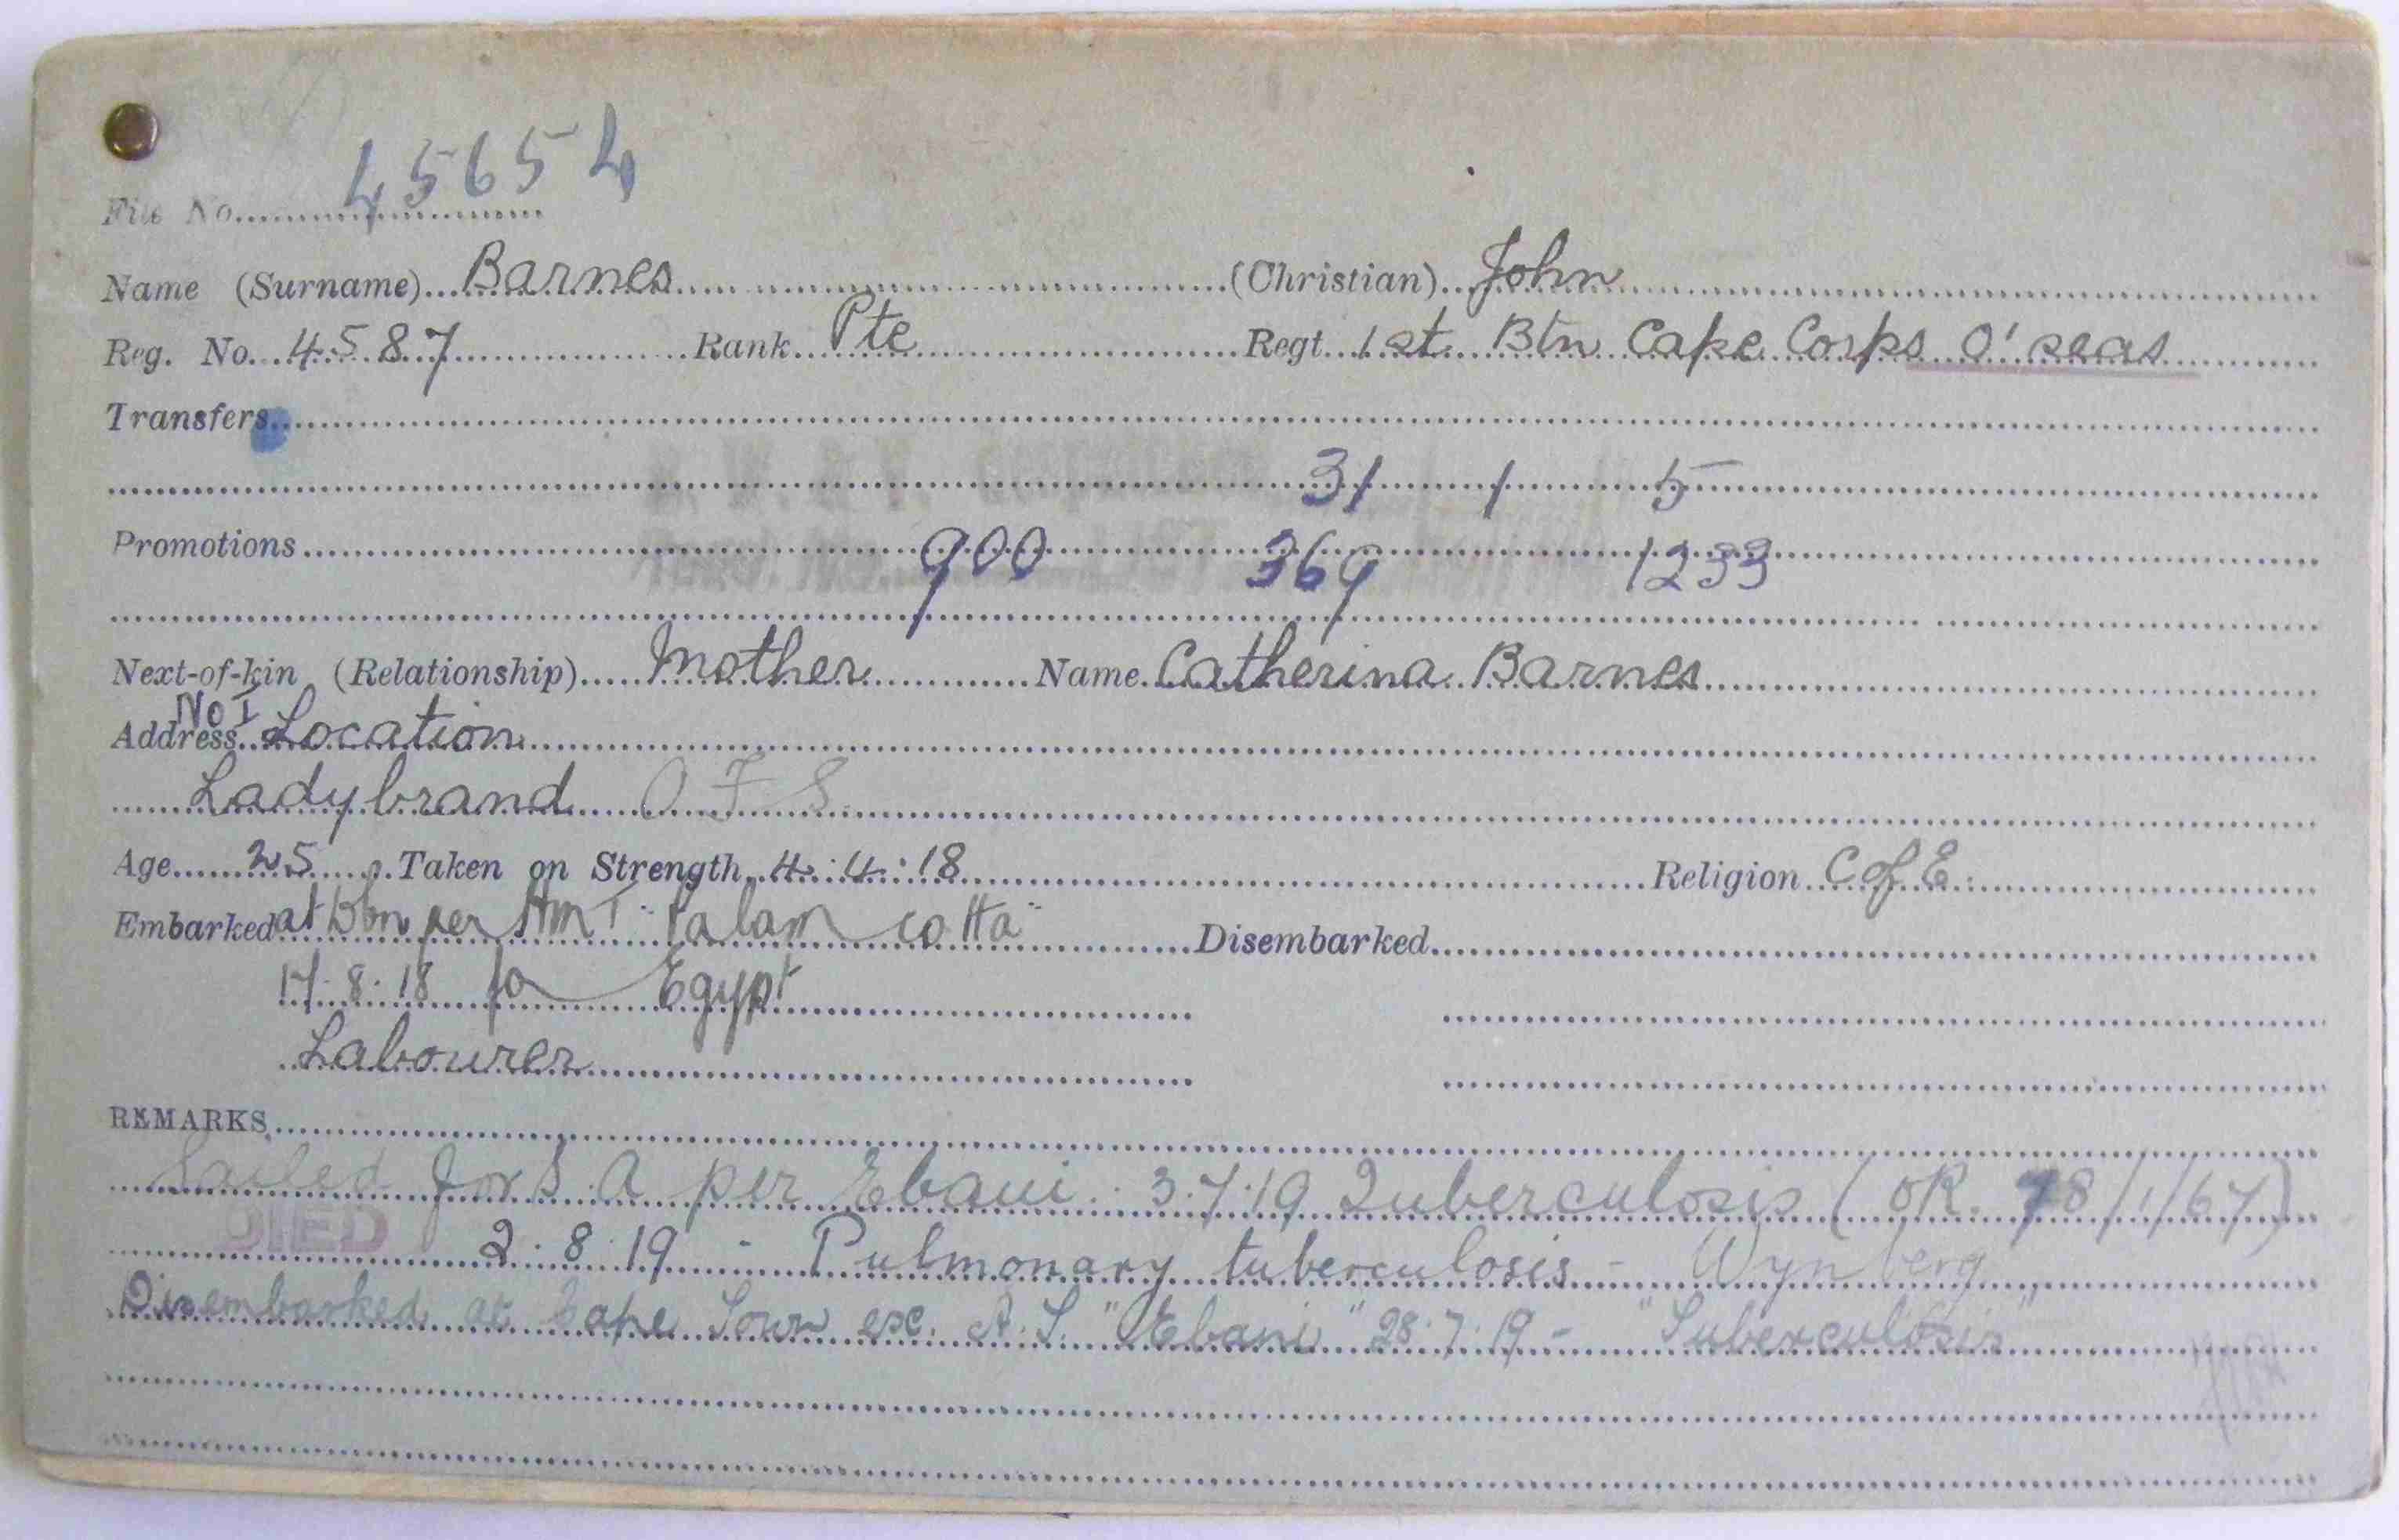 File No. 45654
Name (Surname) Barnes (Christian) John
Reg. No. 4587 Rank Pte Regt 1st Btn Cape Corps O'seas
Transfers
31 1 5
Promotions 900 369 1233
Next-of-kin (Relationship) Mother Name Catherina Barnes
No I
Address Location
Ladybrand O F S
Age 25 Taken on Strength 4:4:18 Religion C of E
Embarked at Dbn per HMT "Palam cotta" Disembarked
17.8.18 for Egypt
Labourer
REMARKS
Sailed for S A per Ebani 3.7.19 Tuberculosis (OR. 78/1/67)
DIED 2.8.19 - Pulmonary tuberculosis - Wynberg
Disembarked at Cape Town exc. A.S. "Ebani" 28.7.19 - "Tuberculosis"